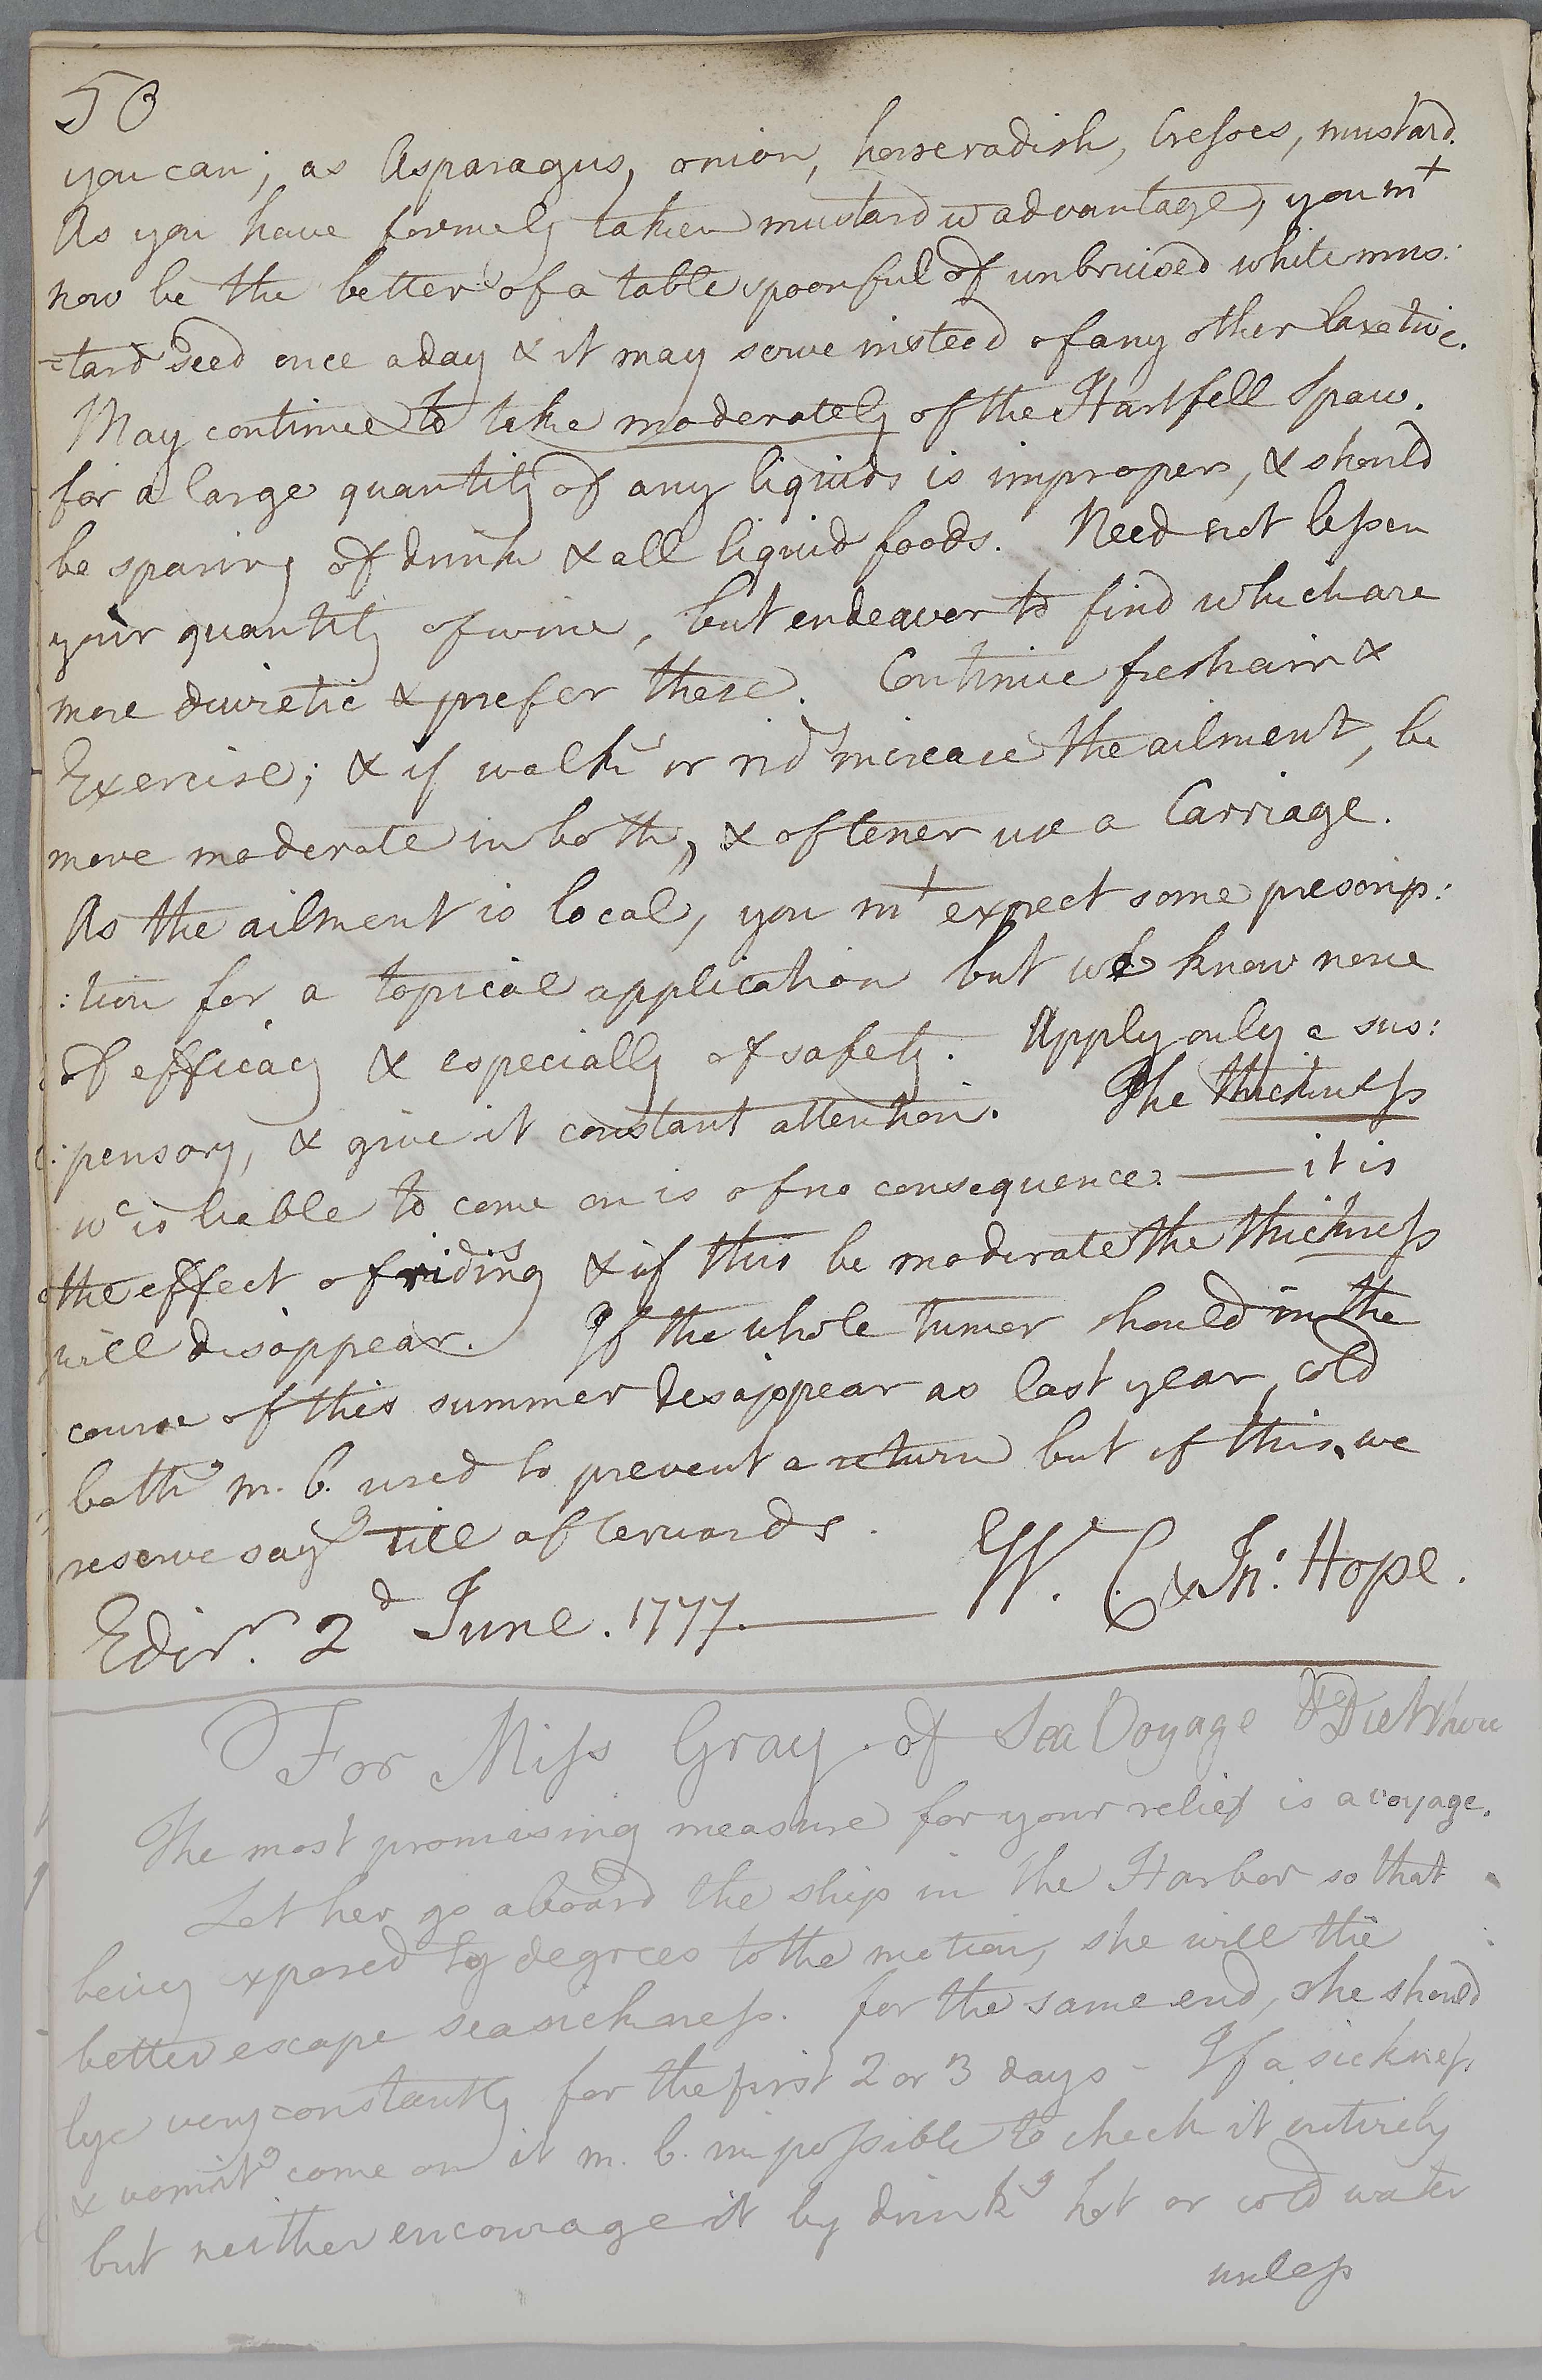 50
you can; as Asparagus, onion, horseradish, Cresses, mustard.
As you have formerly taken mustard w advantage, you mt
now be the better of a table spoonful of unbruised white mus:
=tard seed once a day & it may serve instead of any other laxative.
May continue to take moderately of the Hartfell Spaw.
for a large quantity of any liquids is improper, & should
be sparing of drink & all liquid foods. Need not lessen
your quantity of wine, but endeavor to find which are
more diuretic & prefer these. Continue fresh air &
Exercise; & if walkg or ridg increase the ailment, be
more moderate in both, & oftener use a Carriage.
As the ailment is local, you mt expect some prescrip:
:tion for a topical application but we know none
of efficacy & especially of safety. Apply only a sus:
:pensory, & give it constant attention. The thickness
wc is liable to come on is of no consequence. — it is
the effect of riding & if this be moderate the thickness
will disappear. If the whole tumor should in the
course of this summer disappear as last year, cold
bathg m. b. used to prevent a return but of this, we
reserve sayg till afterwards.
W. C. & Jn: Hope.
Edinr. 2d June. 1777. —
For Miss Gray. of Sea Voyage & Diet there
The most promising measure for your relief is a voyage.
Let her go aboard the ship in the Harbor so that
being xposed by degrees to the motion, she will the
better escape seasickness. for the same end, she should
lye very constantly for the first 2 or 3 days - If a sickness
& vomitg come on it m. b. impossible to check it entirely
but neither encourage it by drinkg hot or cold water
unless